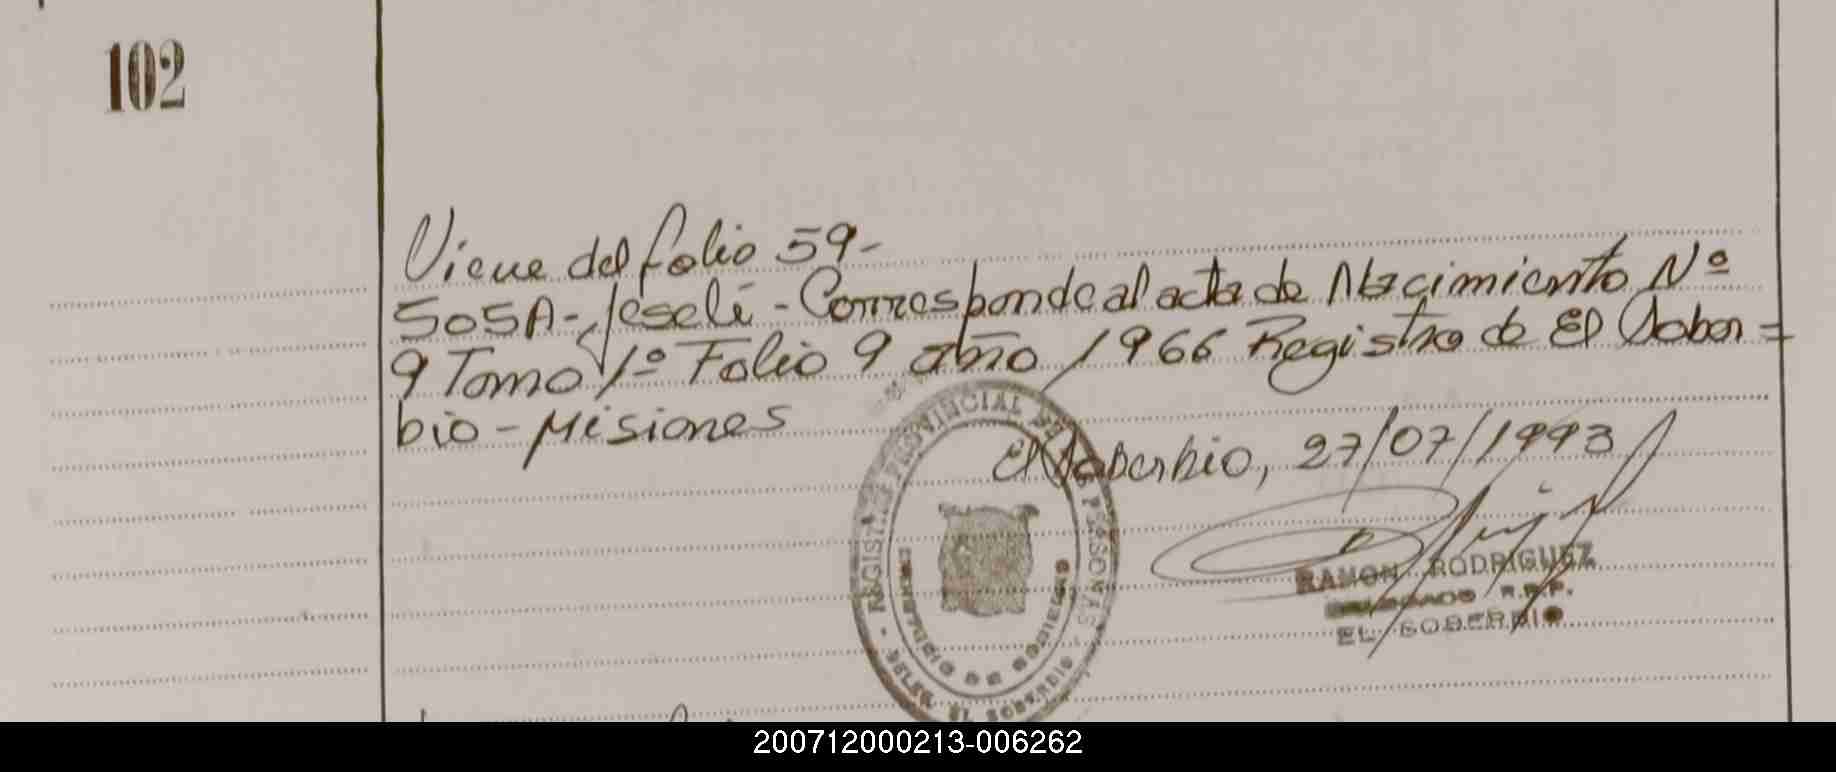 102
Viene del folio 59-
SOSA- Jeseli - Corresponde al acta de Nacimiento Nº
9 Tomo 1º Folio 9 año 1966 Registro de El Sober=
bio - Misiones
El Soberbio, 27/07/1993
REGISTRO PROVINCIAL DE LAS PERSONAS
MINISTERIO DE GOBIERNO
DELEG. EL SOBERBIO
RAMON RODRIGUEZ
DELEGADO R.P.P.
EL SOBERBIO
200712000213-006262